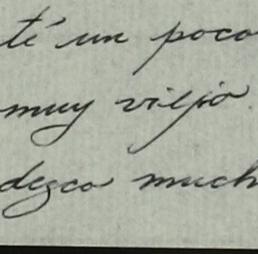 té un poco
muy viejo.
dezco much